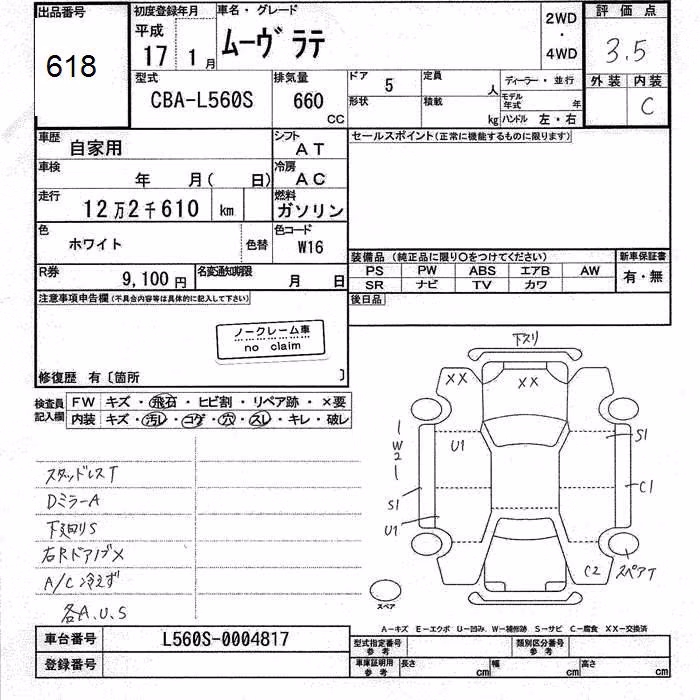 出品番号 618
初度登録年月 平成 17 1月
車名・グレード ムーヴ ラテ
2WD・4WD
評価点 3.5
外装 内装 C
型式 CBA-L560S
排気量 660 CC
ドア 5
形状
定員 人
積載 kg
ディーラー・並行
モデル年式 年
ハンドル 左・右
車歴 自家用
シフト AT
セールスポイント(正常に機能するものに限ります)
車検 年 月( 日)
冷房 AC
走行 12万2千610 km
燃料 ガソリン
色 ホワイト 色替
色コード W16
装備品 (純正品に限り○をつけてください)
新車保証書 有・無
PS PW ABS エアB AW
SR ナビ TV カワ
R券 9,100円
名変通知期限 月 日
後日品
注意事項申告欄(不具合内容等は具体的に記入して下さい)
ノークレーム車
no claim
修復歴 有〔箇所 〕
検査員記入欄
FW キズ・飛石・ヒビ割・リペア跡・×要
内装 キズ・汚レ・コゲ・穴・スレ・キレ・破レ
スタッドレスT
DミラーA
下廻りS
右Rドアノブ×
A/C冷えず
各A.U.S
下スリ
XX XX
W2 U1 S1
S1 C1
U1
C2 スペアT
スペア
A-キズ E-エクボ U-凹み W-補修跡 S-サビ C-腐食 XX-交換済
車台番号 L560S-0004817
登録番号
型式指定番号 参考
類別区分番号 参考
車庫証明用 参考 長さ cm 幅 cm 高さ cm